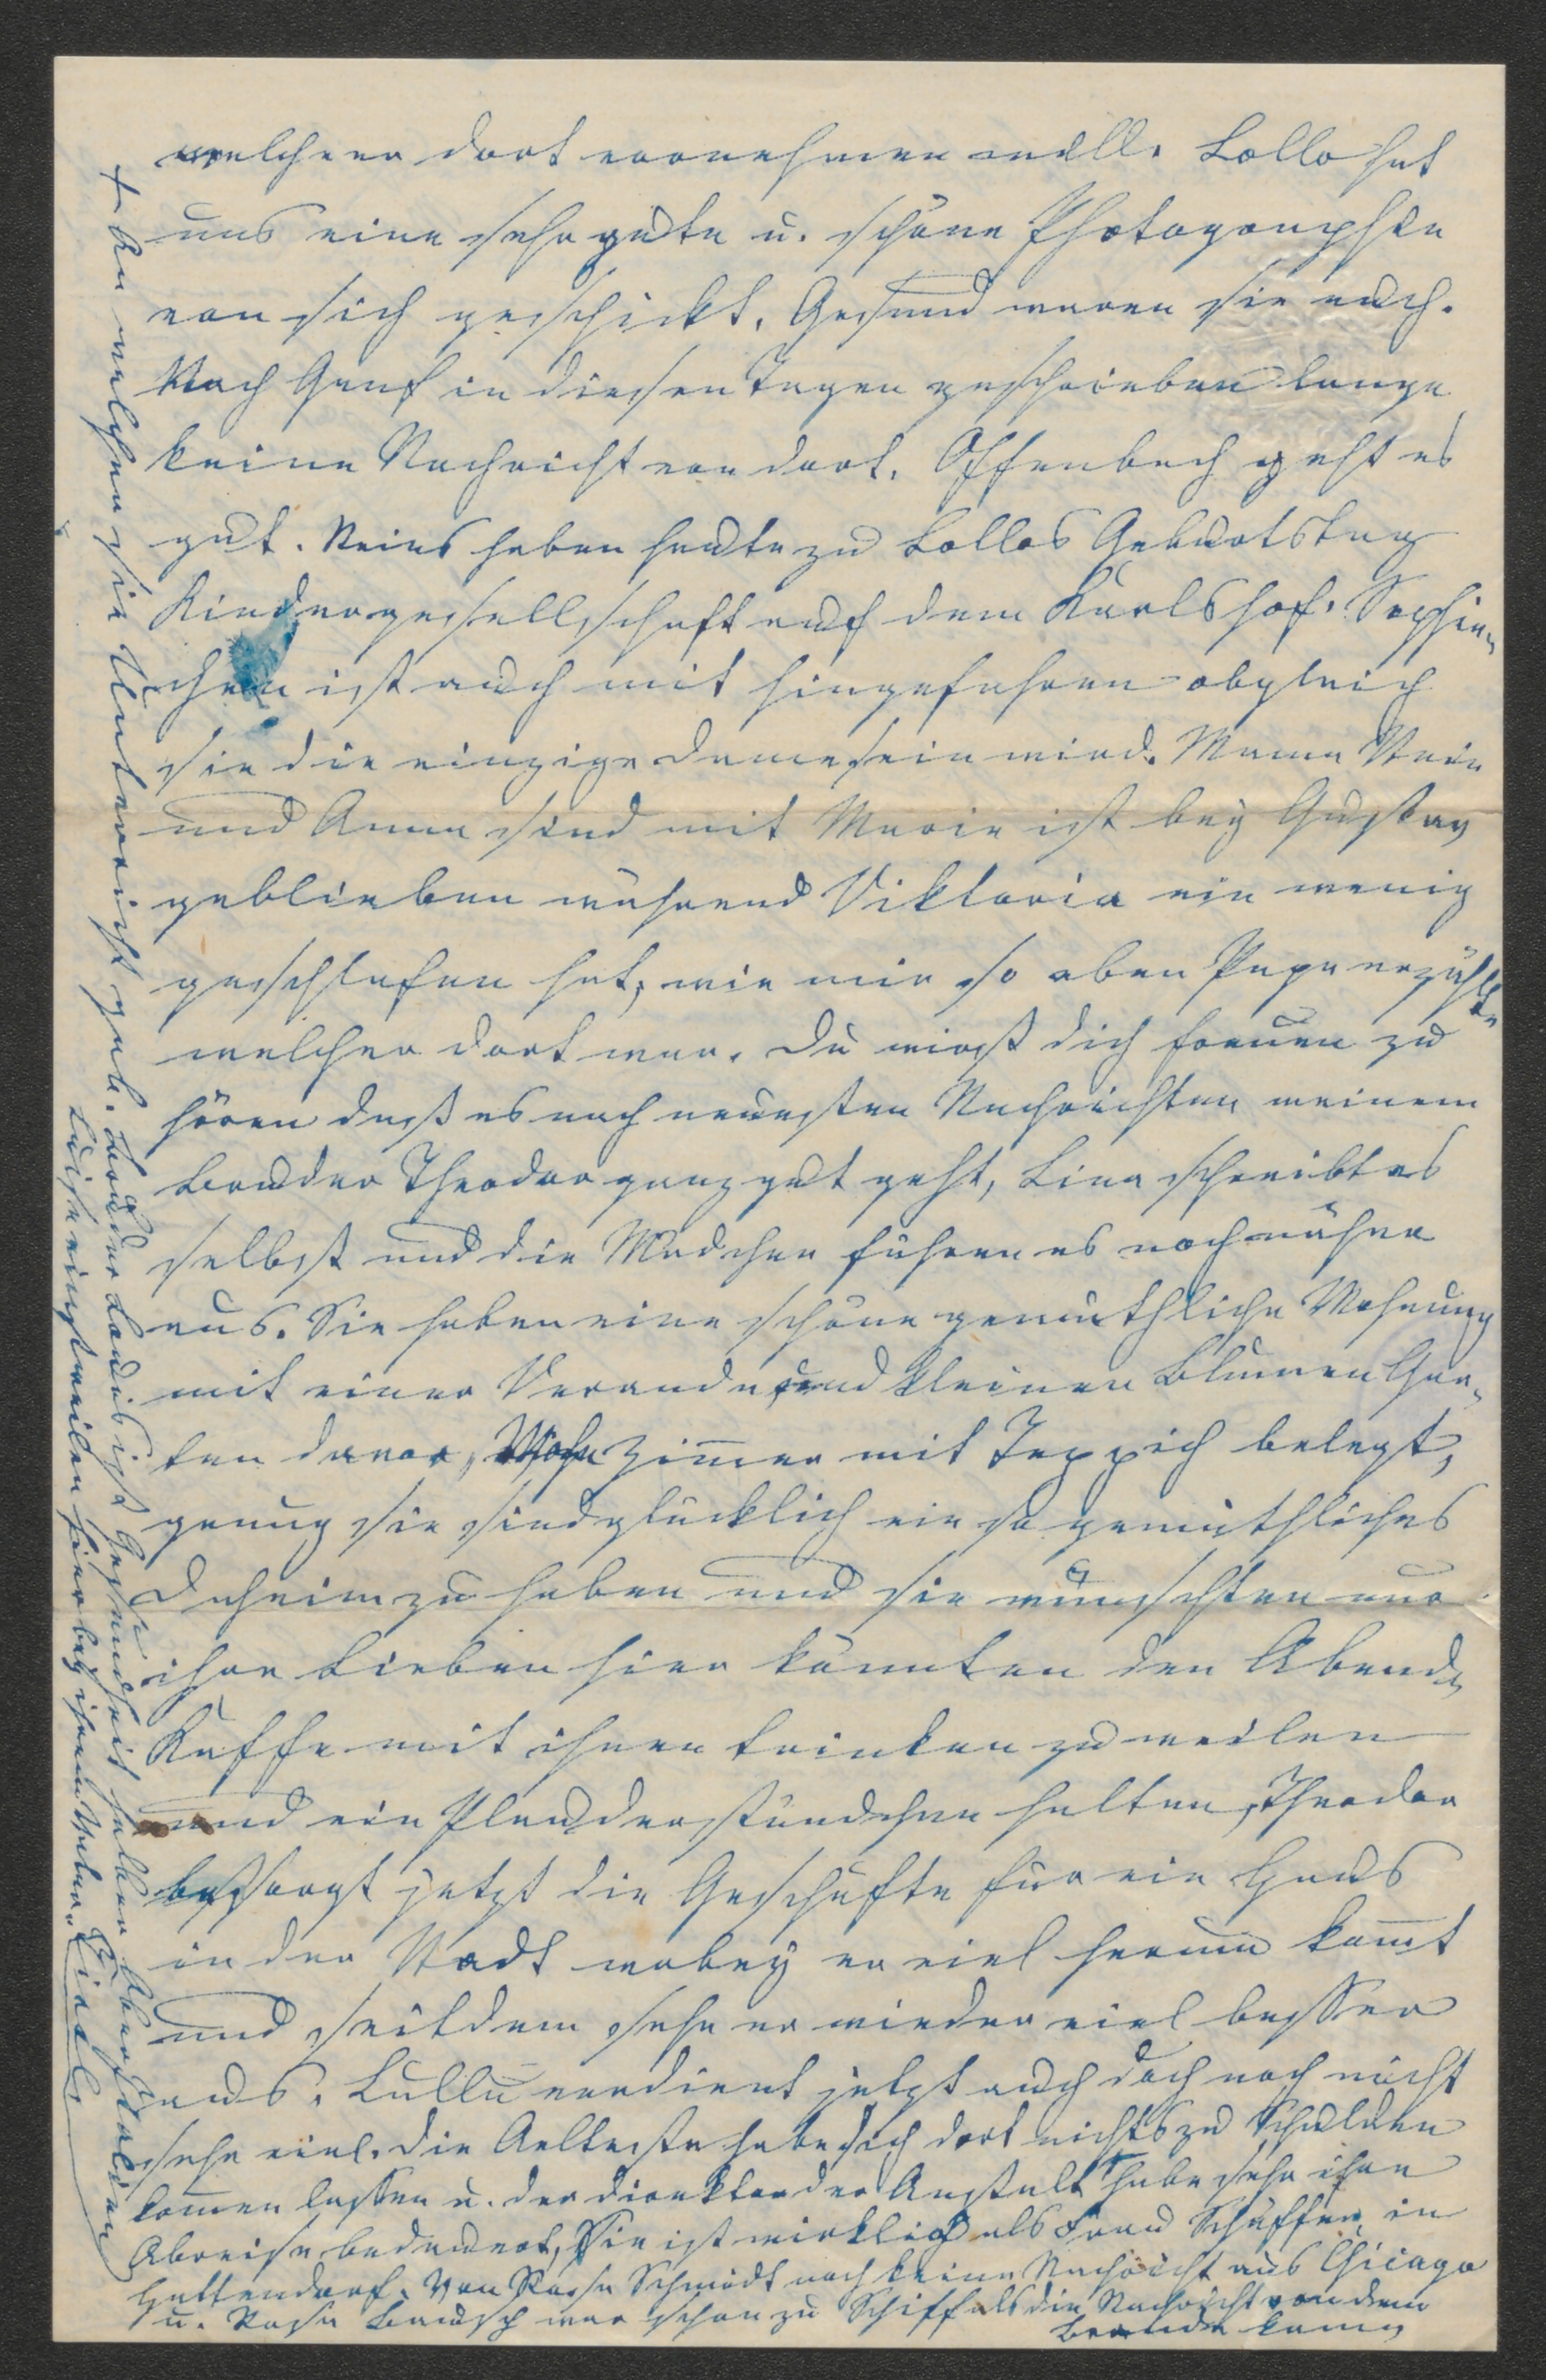 welche er dort vornehmen will. Lollo hat
uns eine sehr gute u. schöne Photographie
von sich geschickt. Gesund waren sie auch.
Nach Genf in diesen Tagen geschrieben lange
keine Nachricht von dort. Offenbach geht es
gut. Reins haben heute zu Lollos Geburtstag
Kindergesellschaft auf dem Karlshof. Sophien„
chen ist auch mit hingefahren obgleich
sie die einzige Dame sein wird. Mama
und Anna sind mit Marie ist bey Gustav
geblieben während Viktoria ein wenig
geschlafen hat, wie mir so eben Papa erzählte
welcher dort war. Du wirst dich freuen zu
hören daß es nach neuesten Nachrichten meinem
Bruder Theodor ganz gut geht, Lina schreibt es
selbst und die Mädchen führen es noch näher
aus. Sie haben eine schöne gemüthliche Wohnung
mit einer Veranda und kleinen Blumen Gar„
ten davor, Zimmer mit Teppich belegt,
genug sie sind glücklich ein so gemüthliches
Daheim zu haben und sie wünschten nur
ihre Lieben hier könnten den Abend„
Kaffe mit ihnen trinken zu weilen
und ein Plauderstündchen halten, Theodor
besorgt jetzt die Geschäfte für ein Haus
in der Stadt wobey er viel herum kommt
und seitdem sehe er wieder viel besser
aus. Lullu verdient jetzt auch doch noch nicht
sehr viel. Die Aelteste habe sich dort nichts zu Schulden
kommen lassen u. der Direktor der Anstalt + habe sehr ihre
Abreise bedauert, Sie ist wirklich als Frau in
Hattendorf. Von Rosa Schmidt noch keine Nachricht aus Chicago
u. Rosa war schon zu Schiff als die Nachricht von dem
Brande kam,
+ An welchen sie Unterricht gab. ist Gesundheit halber
Luise einstweilen hier bey ihrem Vater.